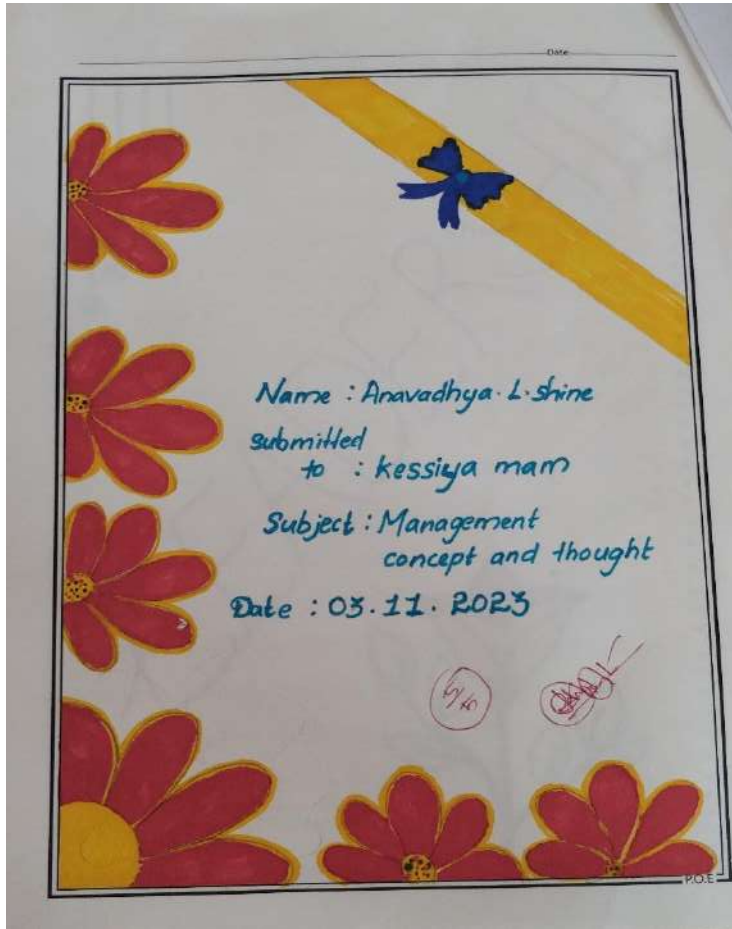 Date
Name : Anavadhya. L. shine
submitted
to : kessiya mam
Subject : Management
concept and thought
Date : 03.11.2023
5/5
P.O.E